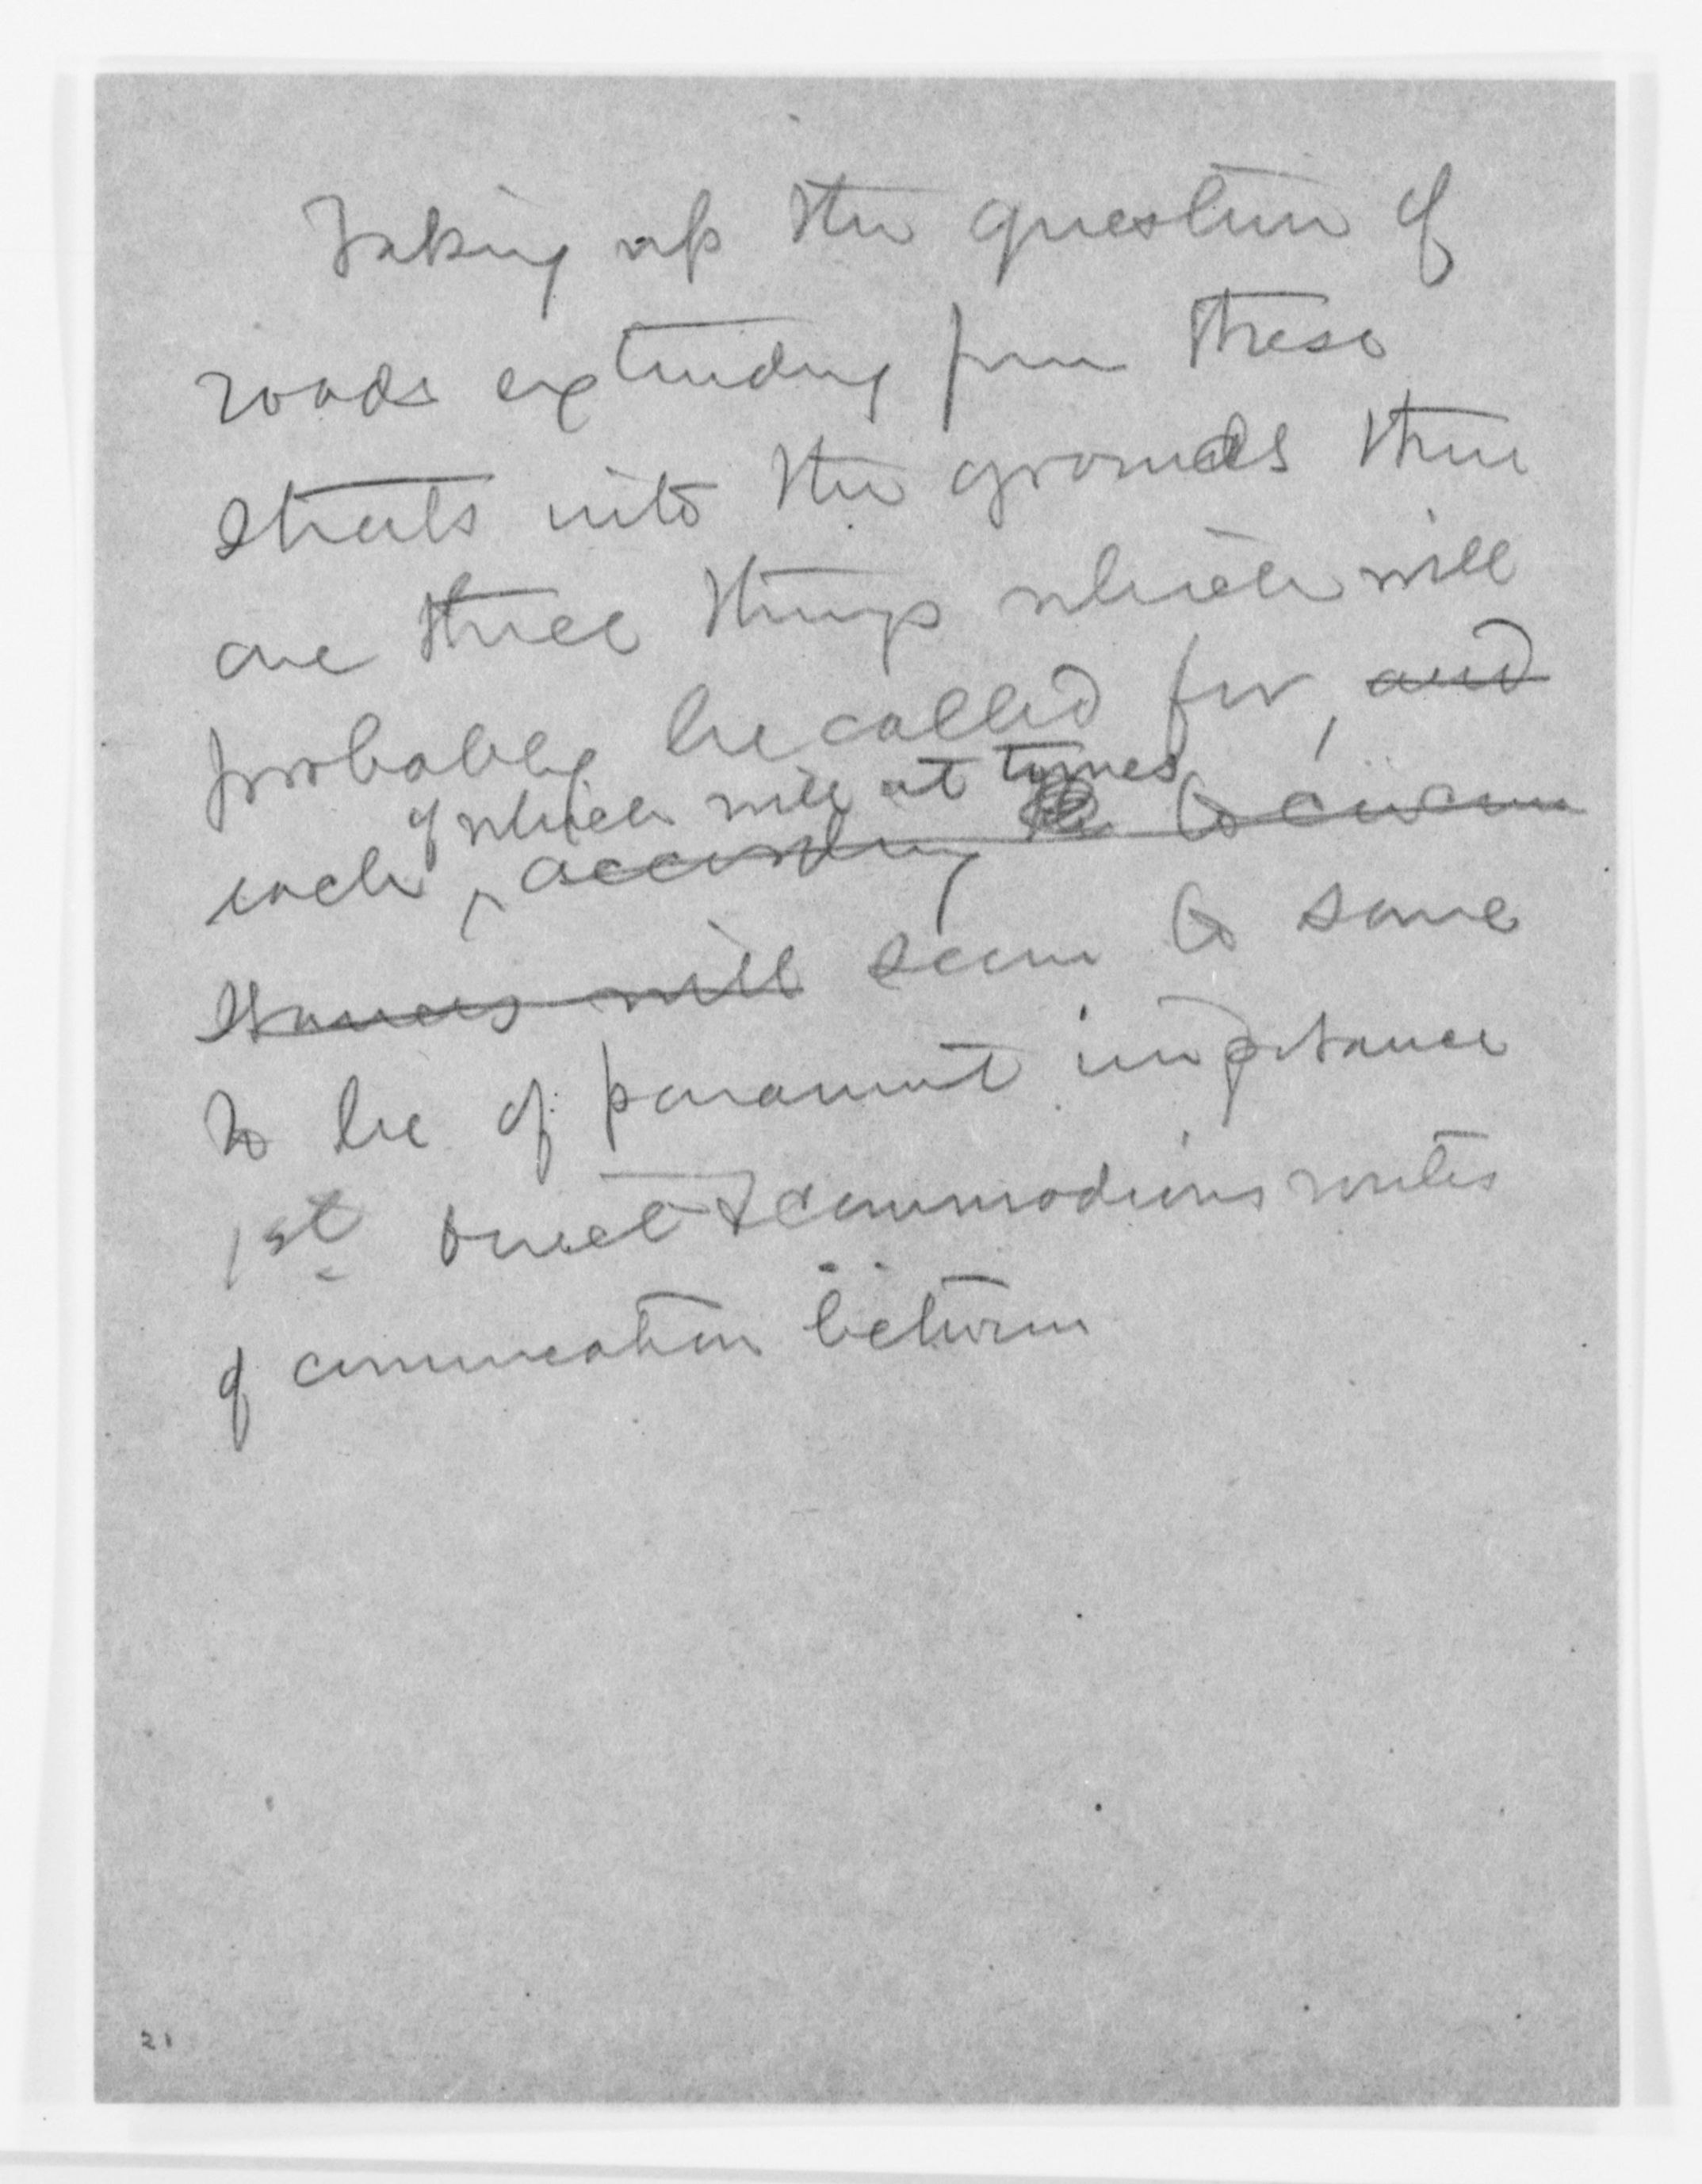 Taking up the question of
roads extending from these
streets into the grounds there
are three things which will
probably be called for, and
of which will at times
each according to circum
stances will seem to some
to be of paramount importance
1st direct & commodious routes
of communication between
21